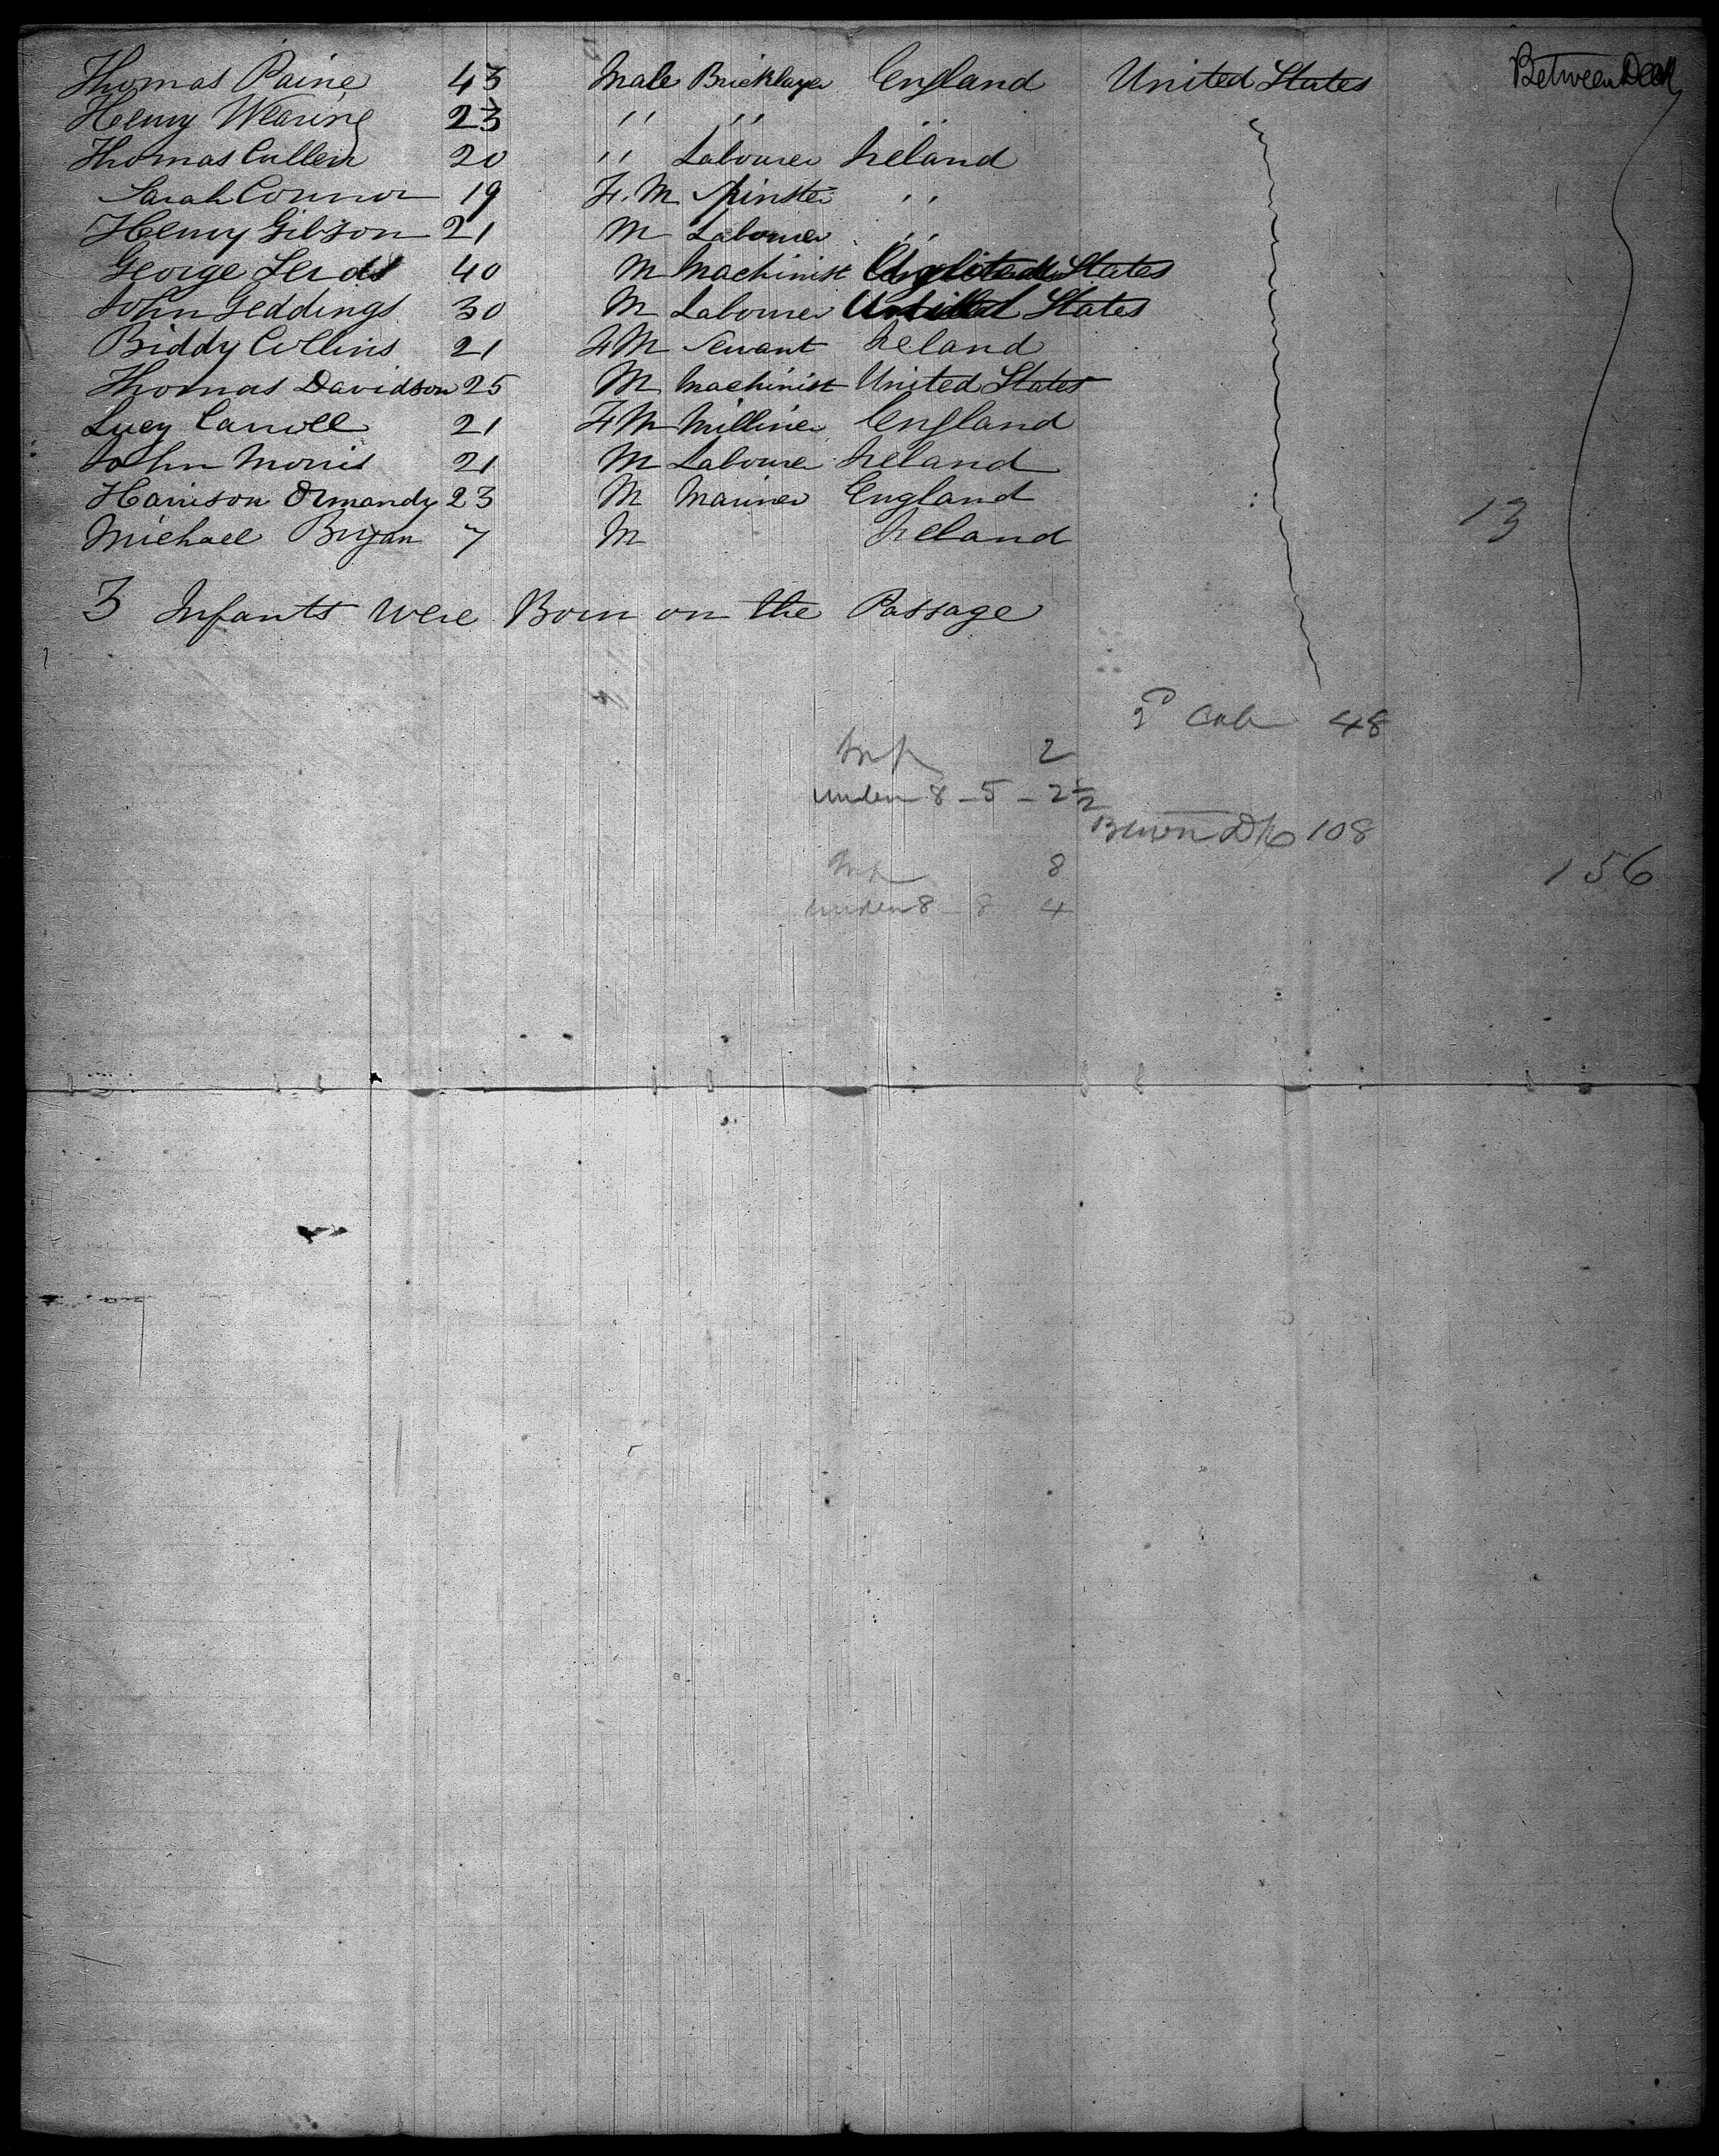 Thomas Paine 43 Male Bricklayer England United States Between Deck
Henry Wearing 23 " " "
Thomas Cullen 20 " Labourer Ireland
Sarah Connor 19 F.M Spinster "
Henry Gibson 21 M Labourer "
George 40 M Machinist United States
John Geddings 30 M Labourer United States
Biddy Collins 21 FM Servant Ireland
Thomas Davidson 25 M Machinist United States
Lucy Carroll 21 FM Milliner England
John Morris 21 M Labourer Ireland
Harrison Ormandy 23 M Mariner England 13
Michael Bryan 7 M Ireland
3 Infants Were Born on the Passage
2d Cab 48
Inf 2
under 8 - 5 - 2½
108
Inf 8 156
under 8 - 8 4